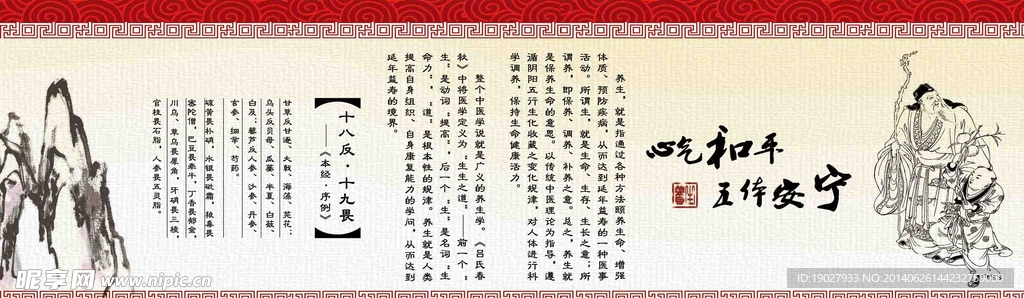 心气和平
五体安宁
养生，就是指通过各种方法颐养生命、增强
体质、预防疾病，从而达到延年益寿的一种医事
活动。所谓生，就是生命、生存、生长之意；所
谓养，即保养、调养、补养之意。总之，养生就
是保养生命的意思。以传统中医理论为指导，遵
循阴阳五行生化收藏之变化规律，对人体进行科
学调养，保持生命健康活力。
整个中医学说就是广义的养生学。《吕氏春
秋》中将医学定义为：生生之道：——前一个：
生：是动词：提高：，后一个：生：是名词：生
命力：，：道：是根本性的规津。养生就是人类
提高自身组织、自身康复能力的学问，从而达到
延年益寿的境界。
【十八反·十九畏】
——《本经·序例》
甘草反甘遂、大戟、海藻、芫花；
乌头反贝母、瓜蒌、半夏、白蔹、
白及；藜芦反人参、沙参、丹参、
玄参、细辛、芍药。
硫黄畏朴硝，水银畏砒霜，狼毒畏
密陀僧，巴豆畏牵牛，丁香畏郁金，
川乌、草乌畏犀角，牙硝畏三棱，
官桂畏石脂，人参畏五灵脂。
昵享网 www.nipic.cn
ID:19027933 NO:20140626144232759000